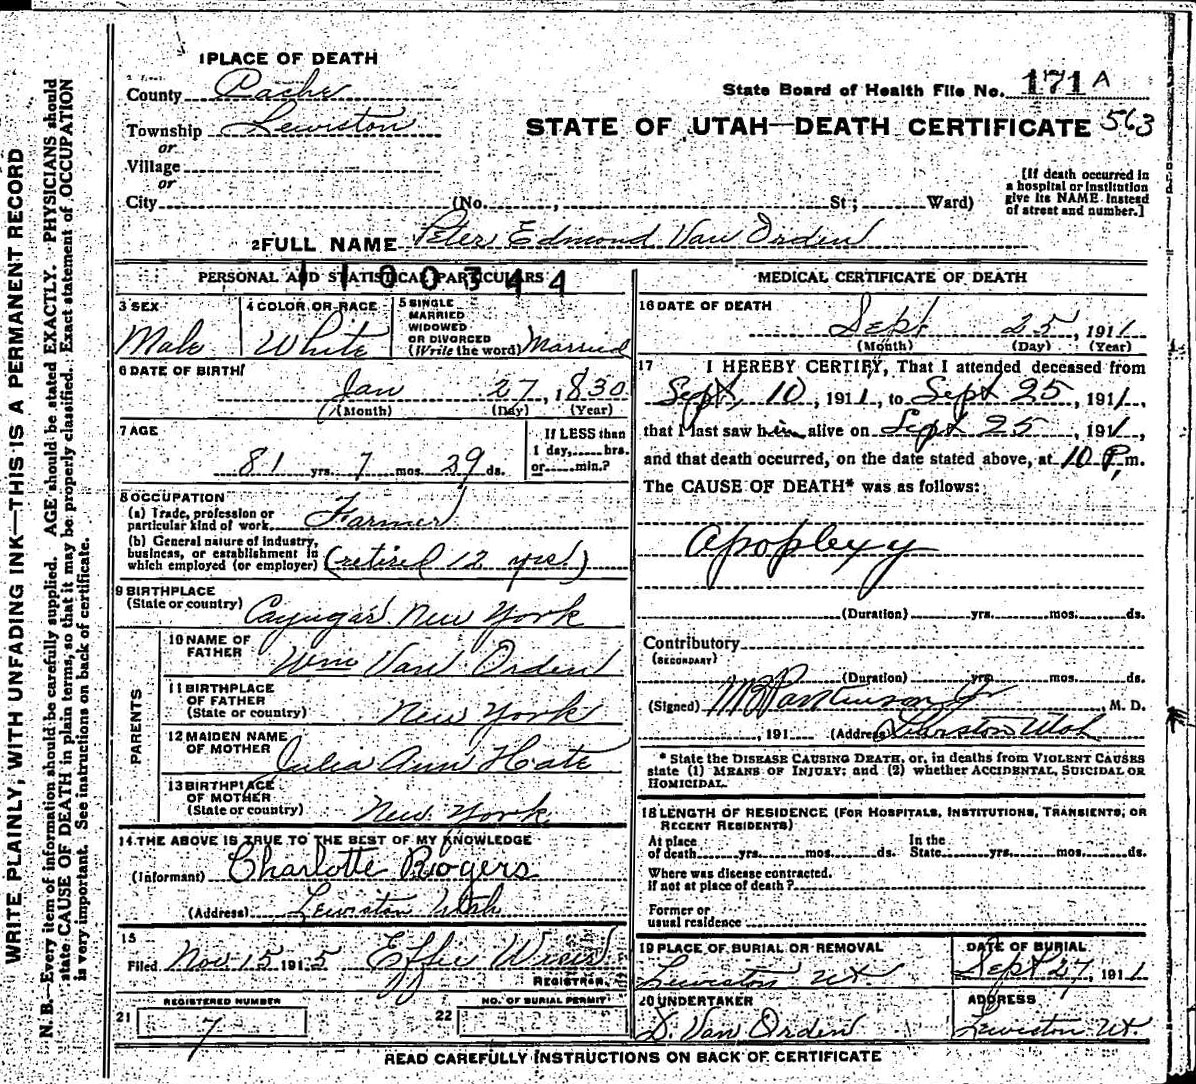 1 PLACE OF DEATH
County Cache
State Board of Health File No. 171 A
Township Lewiston
or
STATE OF UTAH—DEATH CERTIFICATE 563
Village
or
City (No. , St ; Ward)
[If death occurred in
a hospital or institution
give its NAME instead
of street and number.]
2 FULL NAME Peter Edmond Van Orden
PERSONAL AND STATISTICAL PARTICULARS
1100344
3 SEX
Male
4 COLOR OR RACE
White
5 SINGLE
MARRIED
WIDOWED
OR DIVORCED
(Write the word) Married
6 DATE OF BIRTH
Jan 27, 1830
(Month) (Day) (Year)
7 AGE
81 yrs. 7 mos. 29 ds.
If LESS than
1 day, hrs.
or min.?
8 OCCUPATION
(a) Trade, profession or
particular kind of work Farmer
(b) General nature of industry,
business, or establishment in
which employed (or employer) (retired 12 yrs.)
9 BIRTHPLACE
(State or country) Cayuga New York
PARENTS
10 NAME OF
FATHER Wm Van Orden
11 BIRTHPLACE
OF FATHER
(State or country) New York
12 MAIDEN NAME
OF MOTHER Julia Ann Hate
13 BIRTHPLACE
OF MOTHER
(State or country) New York
14 THE ABOVE IS TRUE TO THE BEST OF MY KNOWLEDGE
(Informant) Charlotte Rogers
(Address) Lewiston Utah
15
Filed Nov 15 1915 Effie Wiser
REGISTRAR.
REGISTERED NUMBER
21 7
NO. OF BURIAL PERMIT
22
MEDICAL CERTIFICATE OF DEATH
16 DATE OF DEATH
Sept 25, 1911
(Month) (Day) (Year)
17 I HEREBY CERTIFY, That I attended deceased from
Sept. 10, 1911, to Sept 25, 1911,
that I last saw him alive on Sept 25, 1911,
and that death occurred, on the date stated above, at 10 P. m.
The CAUSE OF DEATH* was as follows:
Apoplexy
(Duration) yrs. mos. ds.
Contributory
(SECONDARY)
(Duration) yrs. mos. ds.
(Signed) Parkinson Jr M. D.
, 191 (Address) Lewiston Utah
* State the DISEASE CAUSING DEATH, or, in deaths from VIOLENT CAUSES
state (1) MEANS OF INJURY; and (2) whether ACCIDENTAL, SUICIDAL OR
HOMICIDAL.
18 LENGTH OF RESIDENCE (FOR HOSPITALS, INSTITUTIONS, TRANSIENTS, OR
RECENT RESIDENTS)
At place
of death yrs. mos. ds.
In the
State yrs. mos. ds.
Where was disease contracted.
if not at place of death?
Former or
usual residence
19 PLACE OF BURIAL OR REMOVAL
Lewiston Ut.
DATE OF BURIAL
Sept 27, 1911
20 UNDERTAKER
D. Van Orden
ADDRESS
Lewiston Ut
READ CAREFULLY INSTRUCTIONS ON BACK OF CERTIFICATE
WRITE PLAINLY, WITH UNFADING INK—THIS IS A PERMANENT RECORD
N. B.—Every item of information should be carefully supplied. AGE should be stated EXACTLY. PHYSICIANS should
state CAUSE OF DEATH in plain terms, so that it may be properly classified. Exact statement of OCCUPATION
is very important. See instructions on back of certificate.